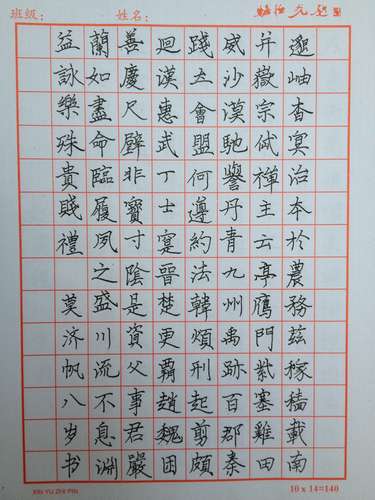 班級: 姓名:
邈岫杳冥治本於農務茲稼穡載南
并嶽宗岱禪主云亭鴈門紫塞雞田
威沙漠馳譽丹青九州禹跡百郡秦
踐土會盟何遵約法韓煩刑起剪頗
迴漢惠武丁士寔晉楚更霸趙魏困
善慶尺璧非寶寸陰是資父事君嚴
蘭如盡命臨履夙之盛川流不息渊
益詠樂殊貴賤禮 莫济帆八岁书
XIN YU ZHI PIN 10 x 14=140